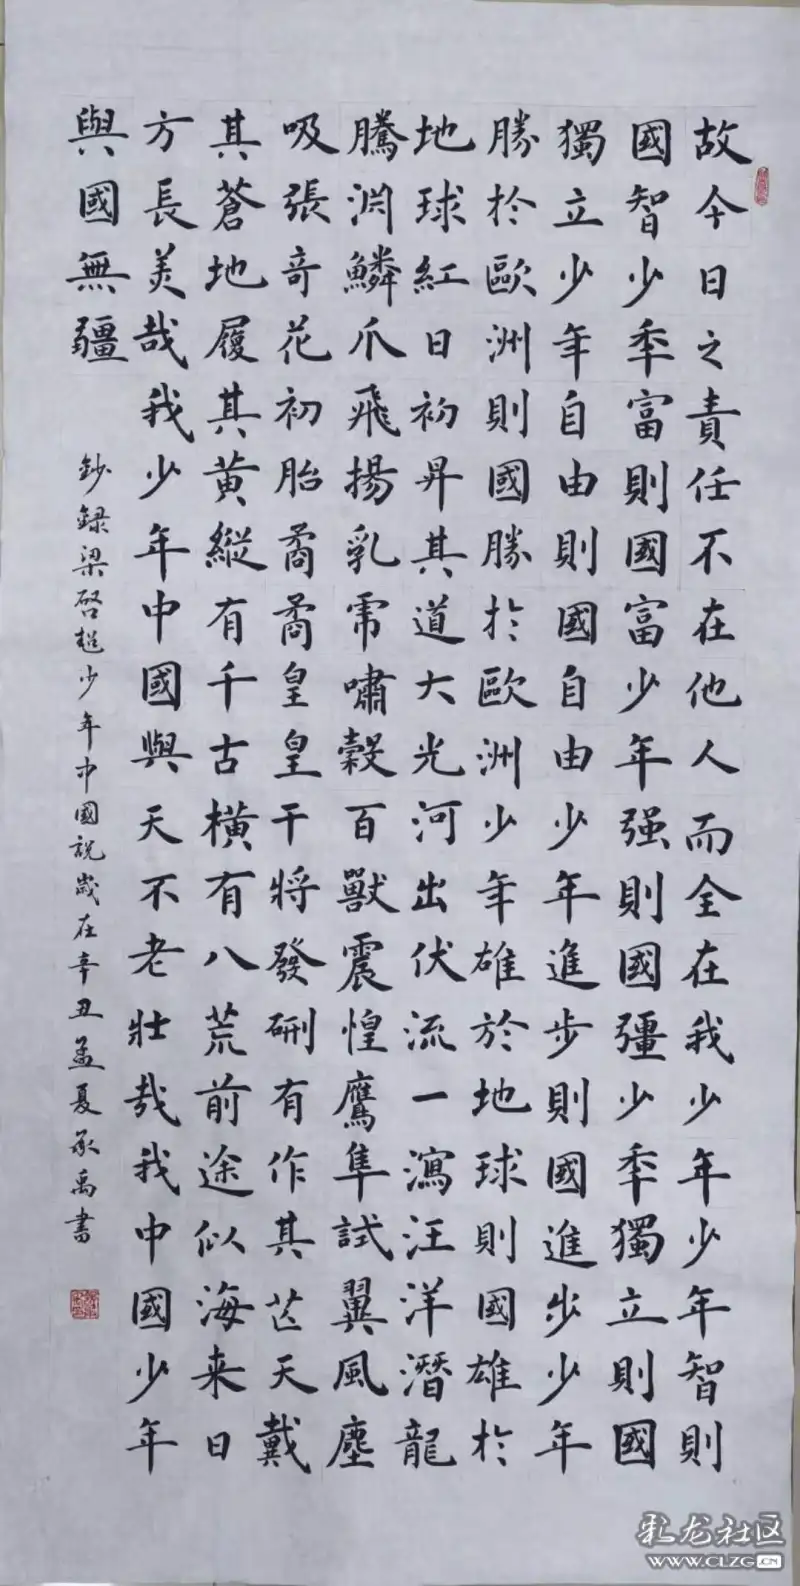 故今日之責任不在他人而全在我少年少年智則
國智少秊富則國富少年强則國彊少秊獨立則國
獨立少年自由則國自由少年進步則國進步少年
勝於歐洲則國勝於歐洲少年雄於地球則國雄於
地球紅日初昇其道大光河出伏流一瀉汪洋潛龍
騰淵鱗爪飛揚乳乕嘯穀百獸震惶鷹隼試翼風塵
吸張奇花初胎矞矞皇皇干將發硎有作其芒天戴
其蒼地履其黃縱有千古橫有八荒前途似海来日
方長美哉我少年中國與天不老壯哉我中國少年
與國無疆
鈔録梁啓超少年中國説歲在辛丑孟夏承禹書
彩龙社区
WWW.CLZG.CN